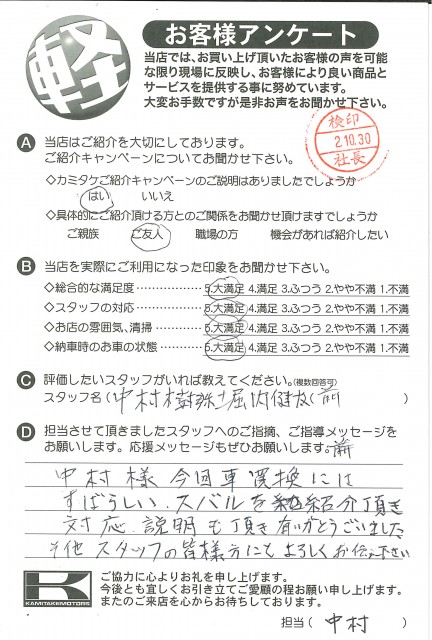 軽
お客様アンケート
当店では、お買い上げ頂いたお客様の声を可能
な限り現場に反映し、お客様により良い商品と
サービスを提供する事に努めています。
大変お手数ですが是非お声をお聞かせ下さい。
検印
2.10.30
社長
A 当店はご紹介を大切にしております。
ご紹介キャンペーンについてお聞かせ下さい。
◇カミタケご紹介キャンペーンのご説明はありましたでしょうか
はい いいえ
◇具体的にご紹介頂ける方とのご関係をお聞かせ頂けますでしょうか
ご親族 ご友人 職場の方 機会があれば紹介したい
B 当店を実際にご利用になった印象をお聞かせ下さい。
◇総合的な満足度 5.大満足 4.満足 3.ふつう 2.やや不満 1.不満
◇スタッフの対応 5.大満足 4.満足 3.ふつう 2.やや不満 1.不満
◇お店の雰囲気、清掃 5.大満足 4.満足 3.ふつう 2.やや不満 1.不満
◇納車時のお車の状態 5.大満足 4.満足 3.ふつう 2.やや不満 1.不満
C 評価したいスタッフがいれば教えてください。(複数回答可)
スタッフ名( 中村樹 堀内健 )
D 担当させて頂きましたスタッフへのご指摘、ご指導メッセージを
お願いします。応援メッセージもぜひお願いします。
中村様 今回車買換には
すばうしい、スバルを紹介頂き
対応、説明も頂き有いがとうごいました
その他 スタッフの皆様方にもよろしくお伝え下さい
K
KAMITAKEMOTORS
ご協力に心よりお礼を申し上げます。
今後とも宜しくお引き立てご愛顧の程お願い申し上げます。
またのご来店を心からお待ちしております。
担当( 中村 )